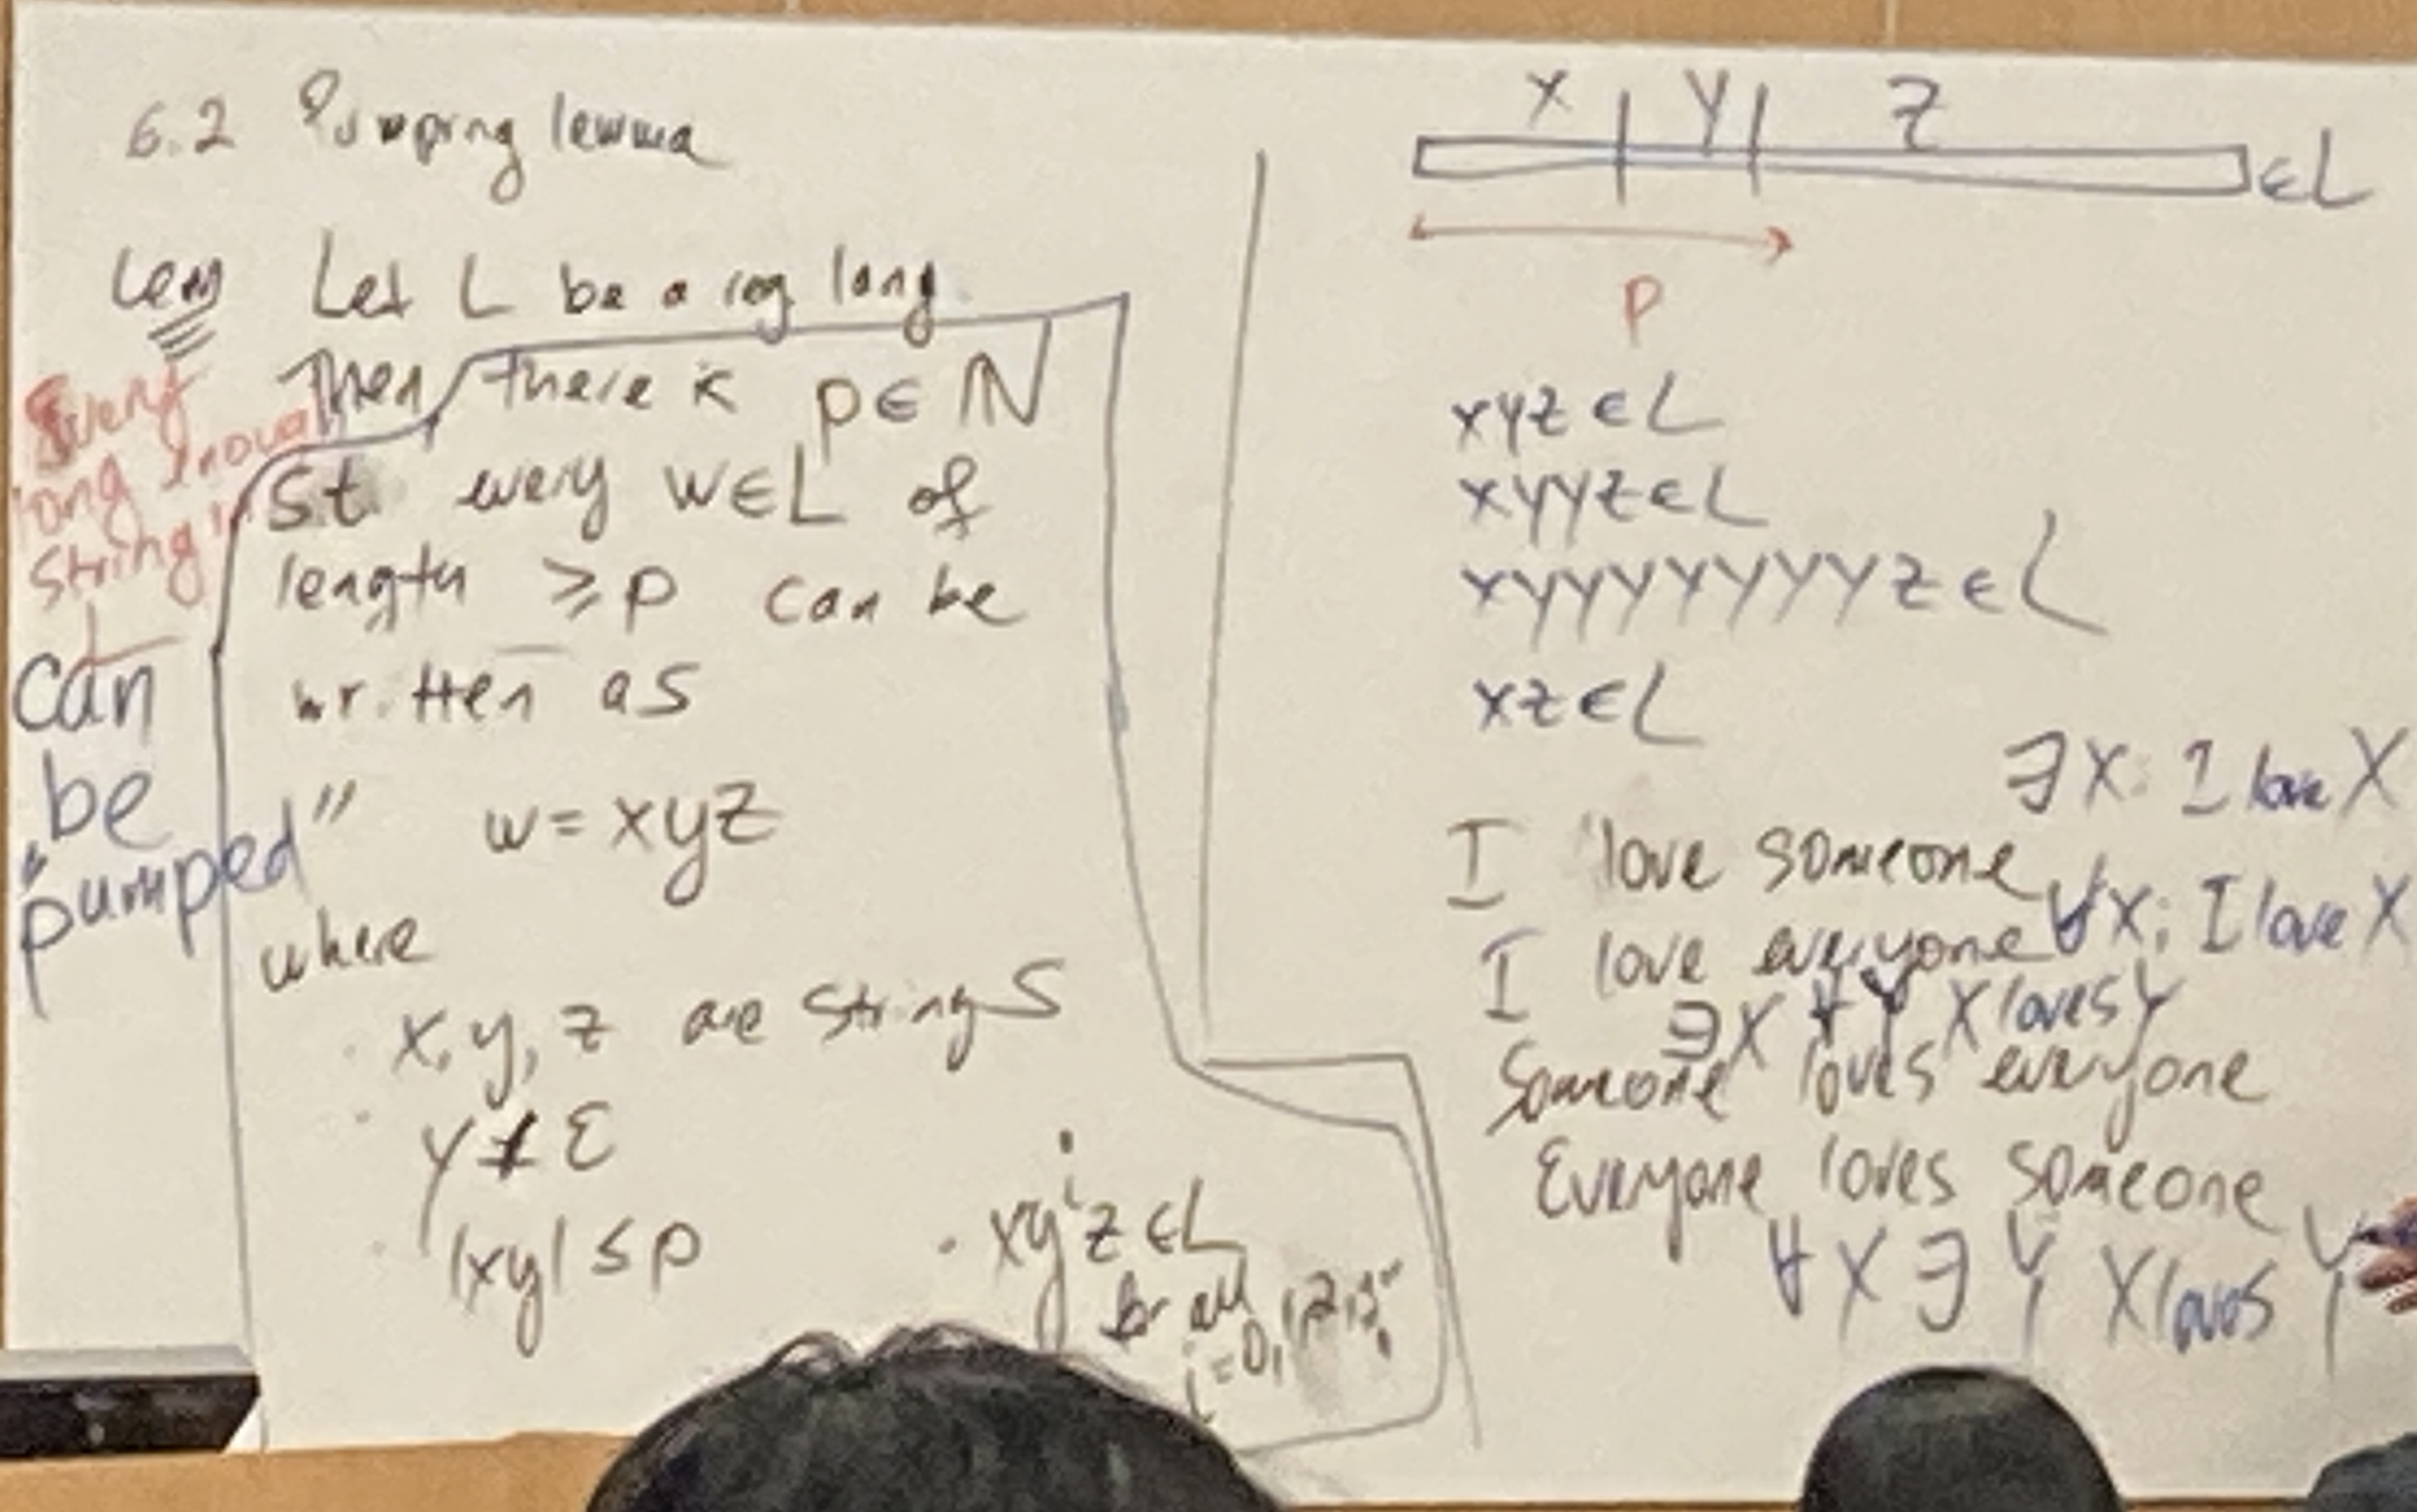 6.2 Pumping lemma
Lem Let L be a reg lang.
Then there is p ∈ ℕ
s.t. every w ∈ L of
length ≥ p can be
written as
w = xyz
where
· x, y, z are strings
· y ≠ ε
· |xy| ≤ p
· xyⁱz ∈ L
for all
i = 0, 1, 2, 3,
Every
long enough
string in
L
can
be
"pumped"
x y z
∈ L
p
xyz ∈ L
xyyz ∈ L
xyyyyyyyyz ∈ L
xz ∈ L
∃ X: I love X
I love someone
∀ X: I love X
I love everyone
∃ X ∀ Y X loves Y
Someone loves everyone
Everyone loves someone
∀ X ∃ Y X loves Y